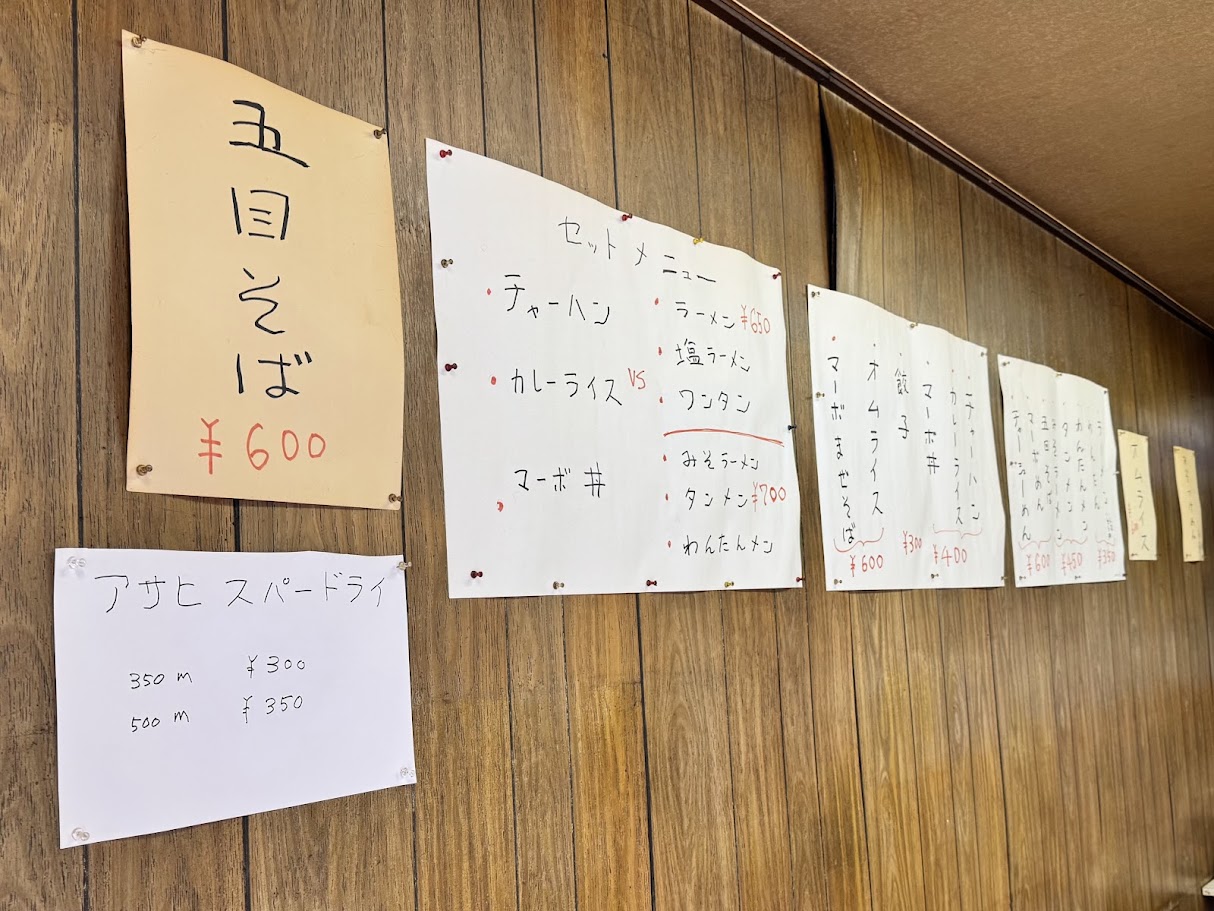 五目そば
¥600
アサヒ スパードライ
350 m ¥300
500 m ¥350
セットメニュー
・チャーハン
・カレーライス
・マーボ丼
VS
・ラーメン ¥650
・塩ラーメン
・ワンタン
・みそラーメン
・タンメン ¥700
・わんたんメン
・チャーハン
・カレーライス
・マーボ丼
¥400
・餃子
¥300
・オムライス
・マーボまぜそば
¥600
¥350
・わんたんメン
・タンメン
・みそラーメン
¥450
・五目そば
・マーボめん
¥600
オムライス